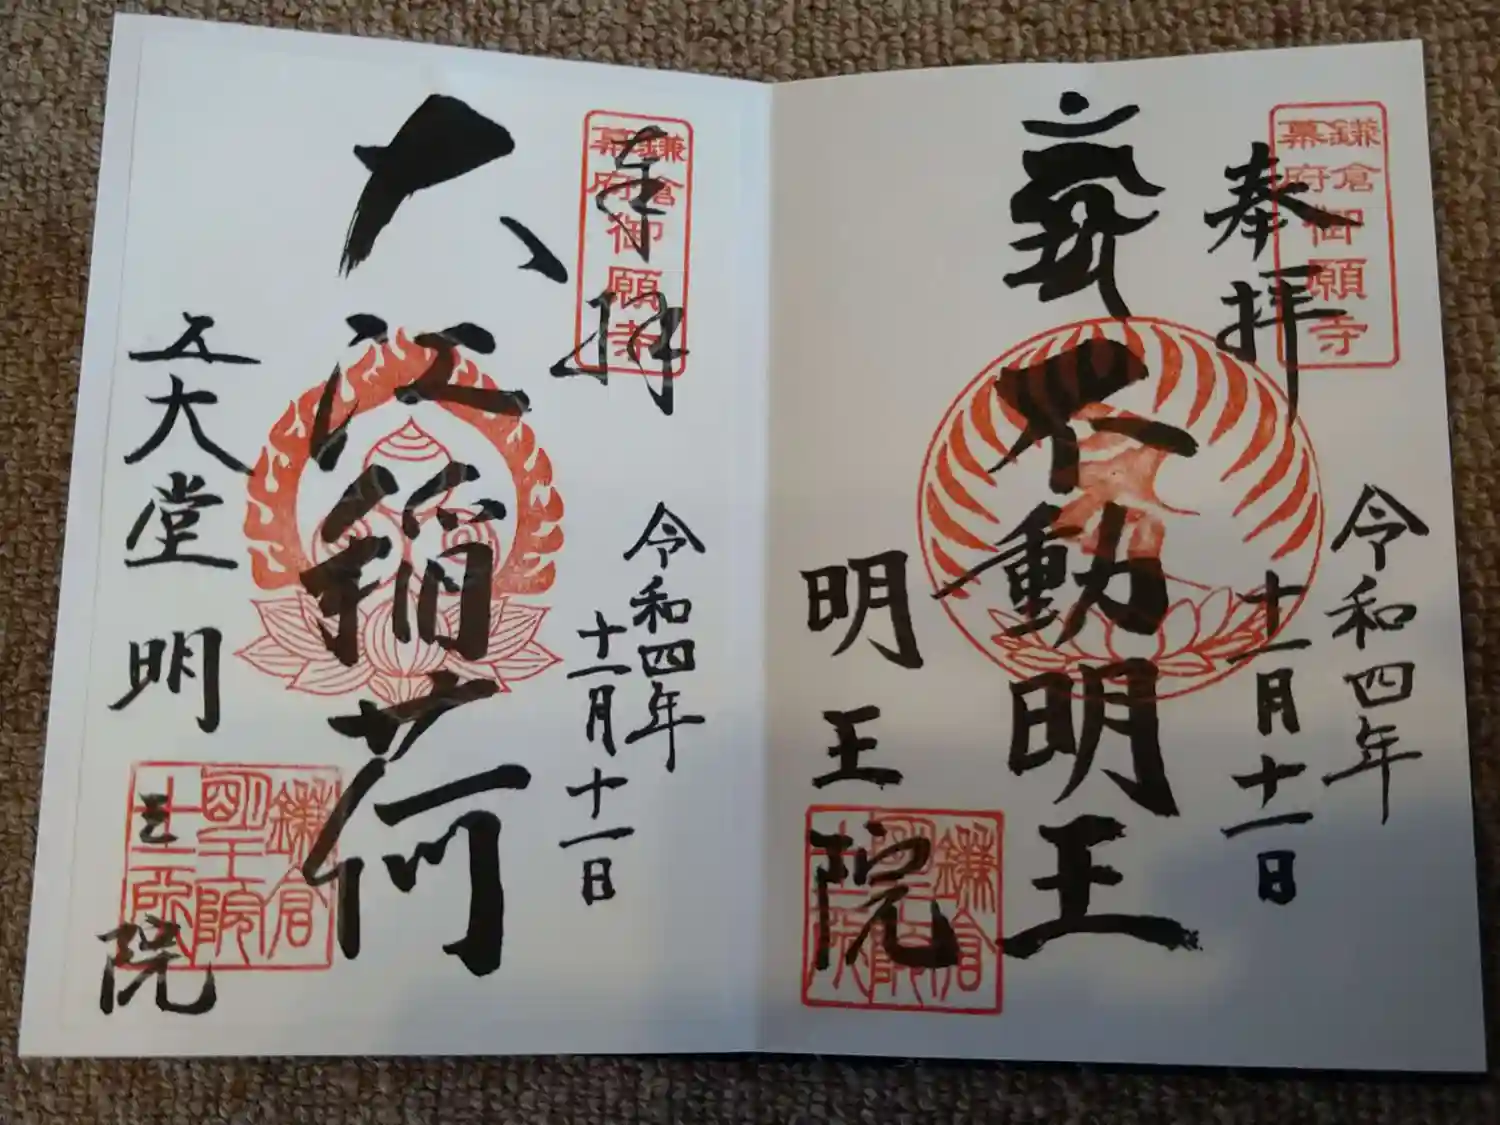 鎌倉
幕府
御願寺
奉拝
令和四年
十一月十一日
不動明王
明王院
鎌倉
明王院
鎌倉
幕府
御願寺
奉拝
令和四年
十一月十一日
大江稲荷
五大堂
明王院
鎌倉
明王院